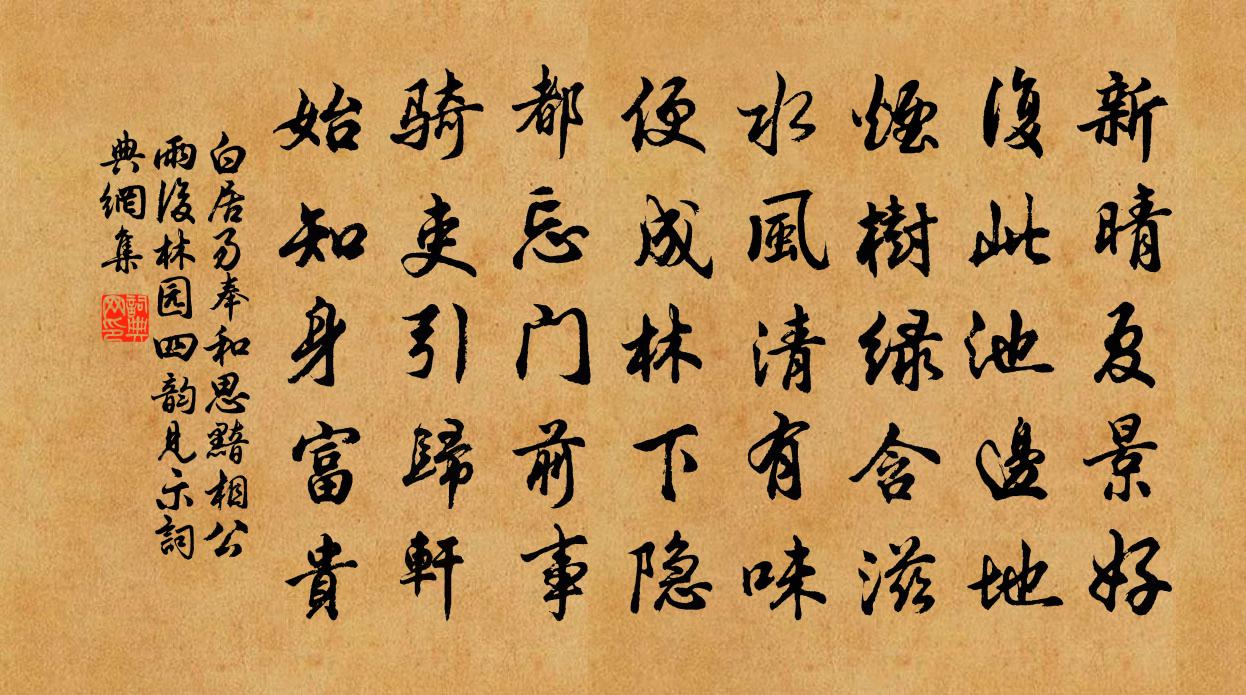 新晴夏景好
復此池邊地
煙樹緑含滋
水風清有味
便成林下隐
都忘门前事
骑吏引歸軒
始知身富貴
白居易奉和思黯相公
雨後林园四韵見示詞
典網集
詞典
网印